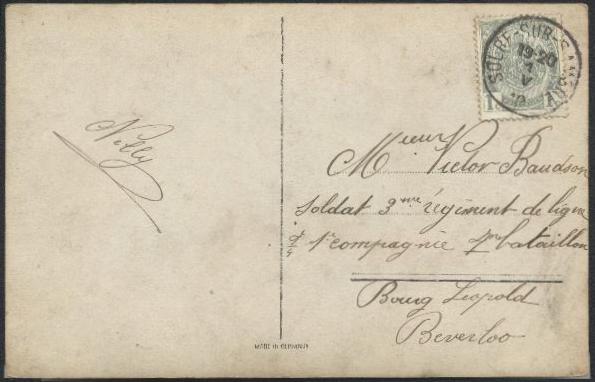 Nelly
SOLRE-SUR-S
19-20
1
V
1
Mieur Victor Baudson
Soldat 3me régiment de ligne
1e compagnie bataillon
Bourg Leopold
Beverloo
MADE IN GERMANY